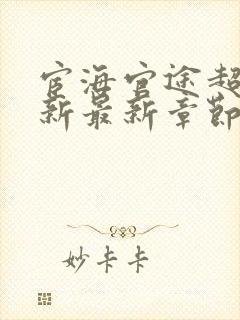 宦海官途超
新最新章节
妙卡卡